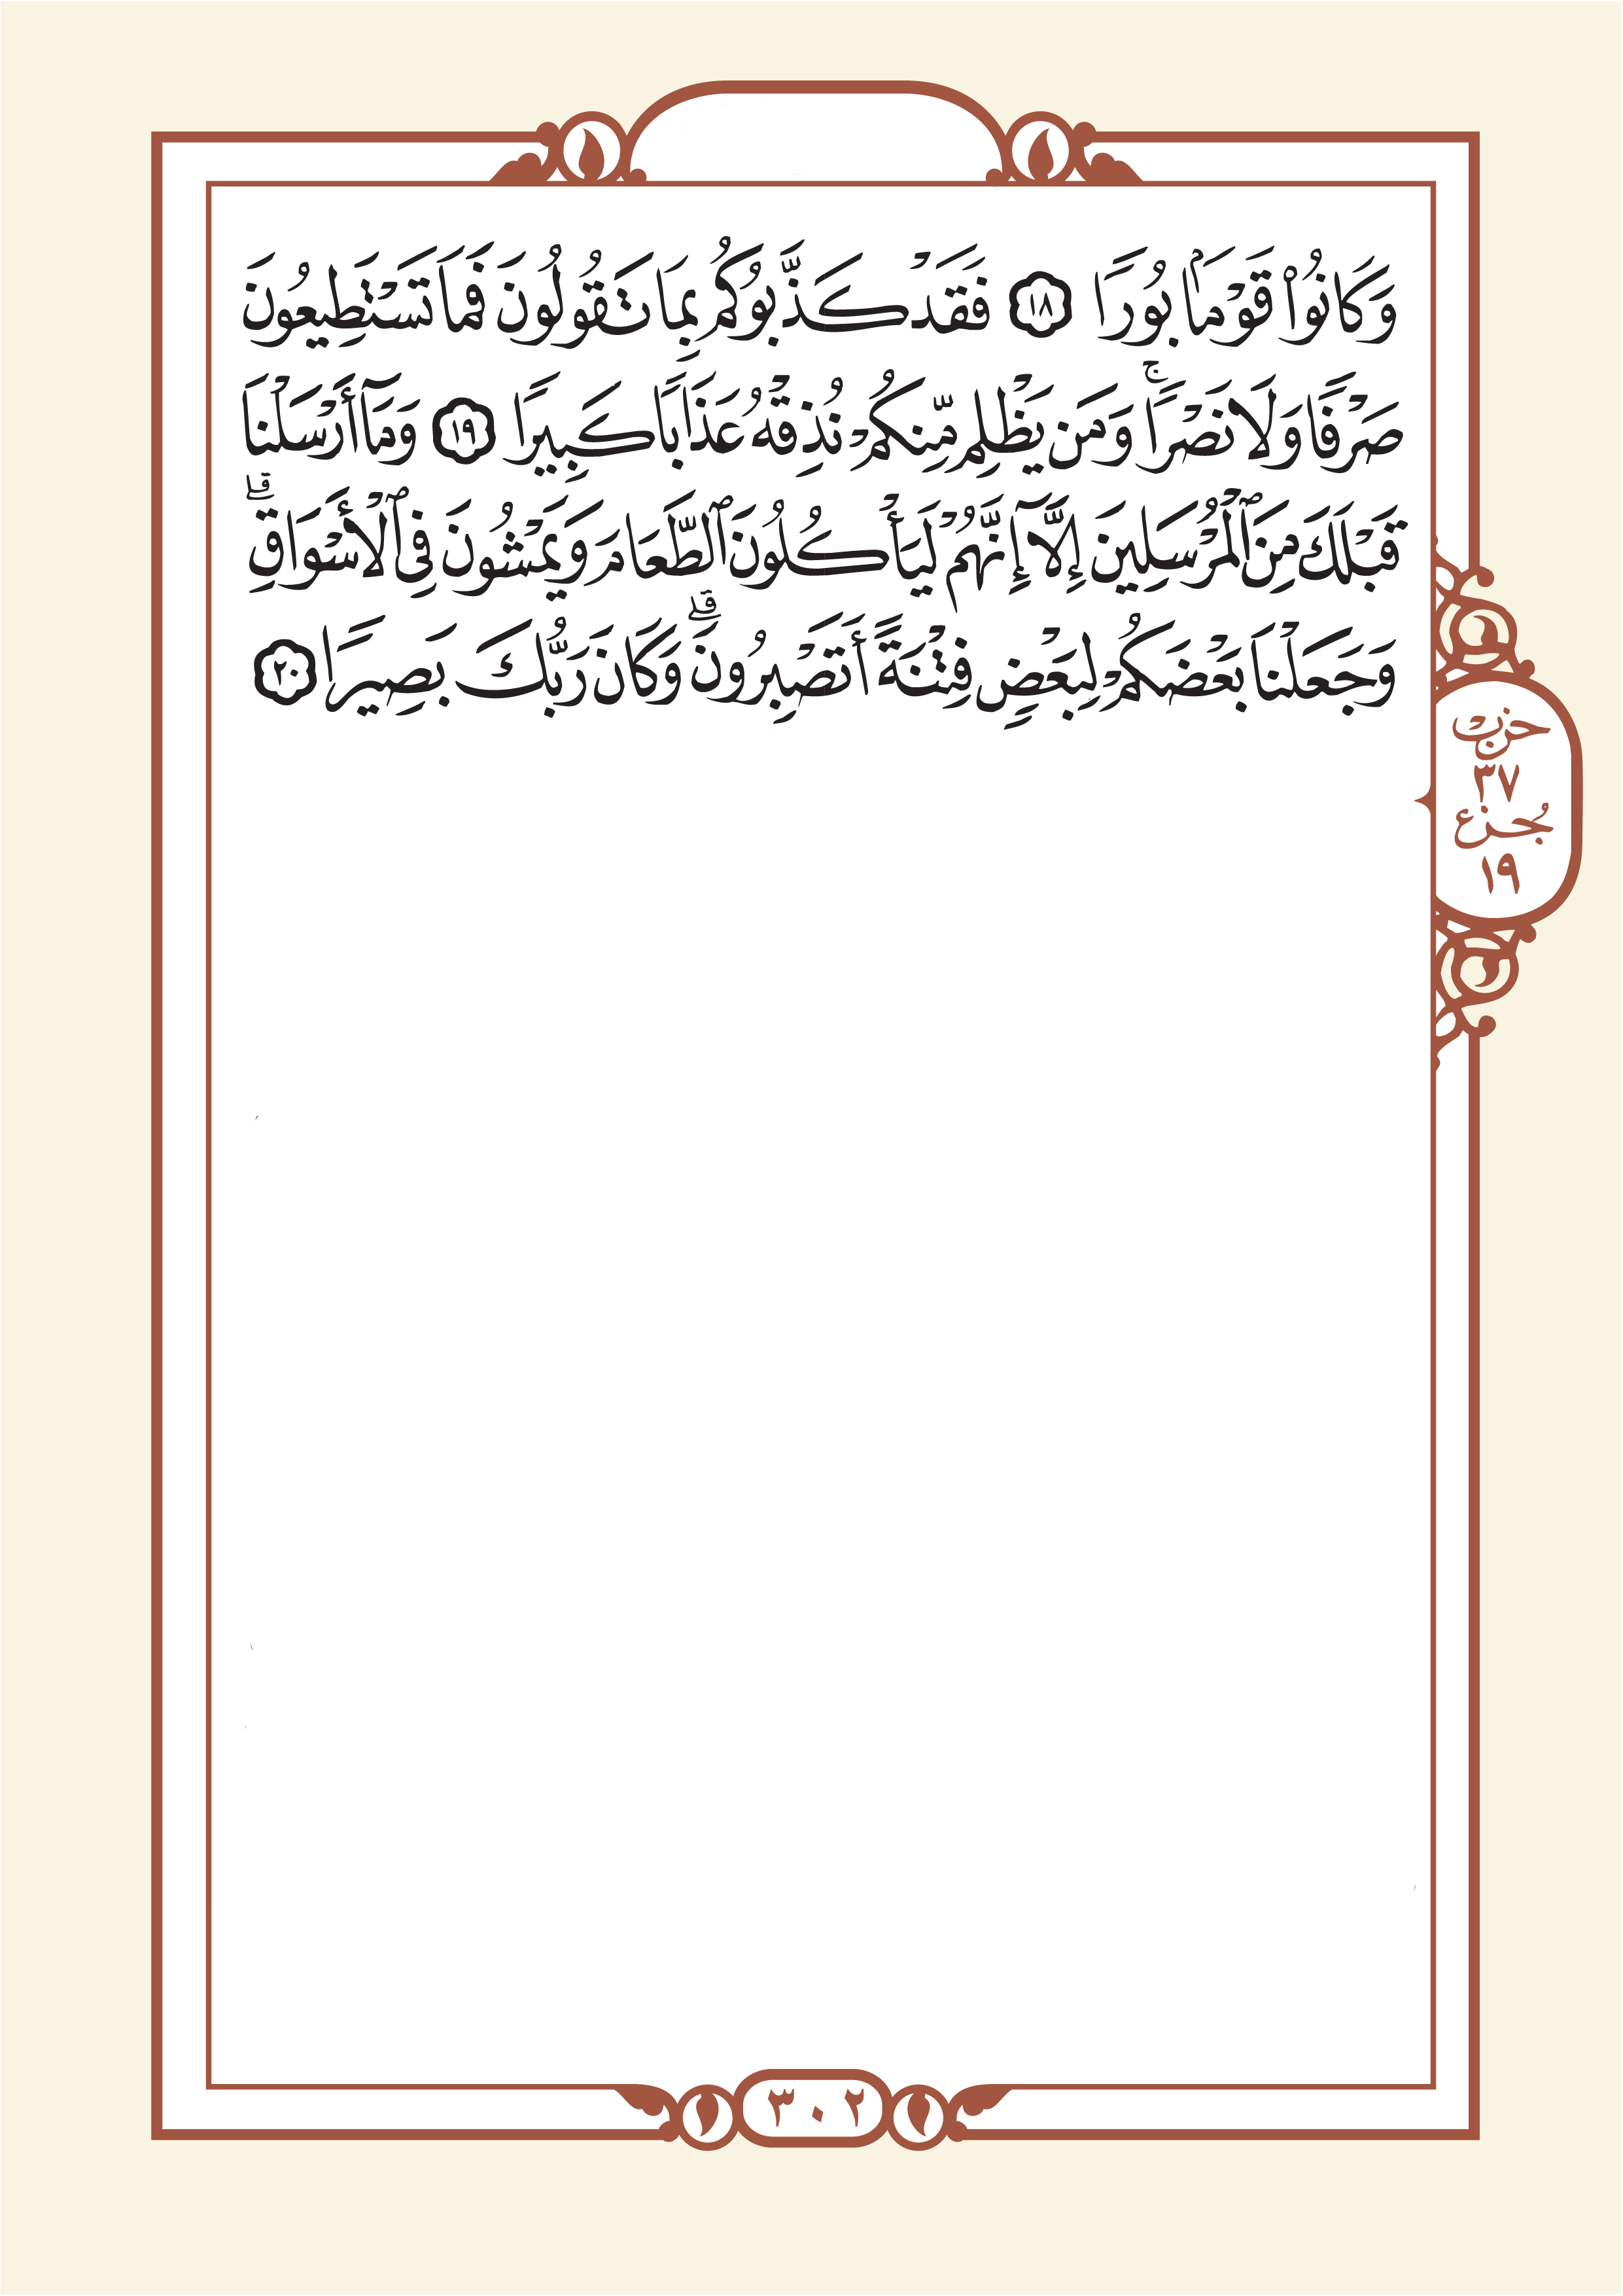 وَكَانُوا۟ قَوْمَۢا بُورًا ١٨ فَقَدْ كَذَّبُوكُم بِمَا تَقُولُونَ فَمَا تَسْتَطِيعُونَ
صَرْفًا وَلَا نَصْرًاۚ وَمَن يَظْلِم مِّنكُمْ نُذِقْهُ عَذَابًا كَبِيرًا ١٩ وَمَآ أَرْسَلْنَا
قَبْلَكَ مِنَ ٱلْمُرْسَلِينَ إِلَّآ إِنَّهُمْ لَيَأْكُلُونَ ٱلطَّعَامَ وَيَمْشُونَ فِى ٱلْأَسْوَاقِۗ
وَجَعَلْنَا بَعْضَكُمْ لِبَعْضٍ فِتْنَةً أَتَصْبِرُونَۗ وَكَانَ رَبُّكَ بَصِيرًا ٢٠
حزب
٣٧
جُزء
١٩
٣٠٢